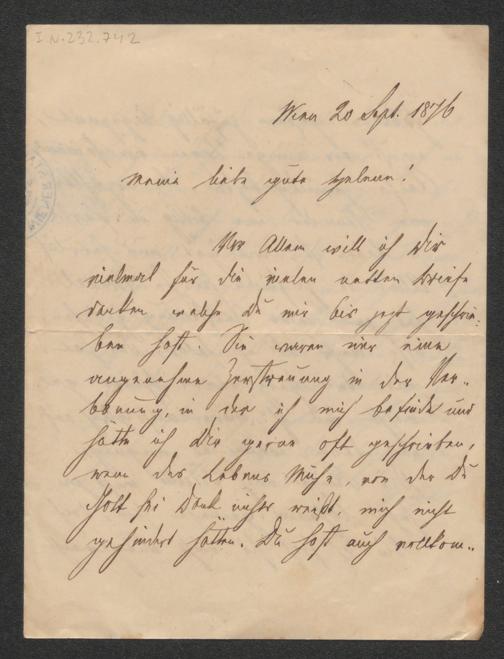 I.N. 232.742
Wien 20 Sept. 1876
Meine liebe gute Helene!
Vor Allem will ich Dir
vielmal für die vielen netten Briefe
danken welche Du mir bis jetzt geschrie-
ben hast. Sie waren mir eine
angenehme Zerstreuung in der Ver-
bannung, in der ich mich befinde und
hätte ich Dir gerne oft geschrieben,
wenn des Lebens Mühe, von der Du
Gott sei Dank nichts weißt, mich nicht
gehindert hätten. Du hast auch vollkom-